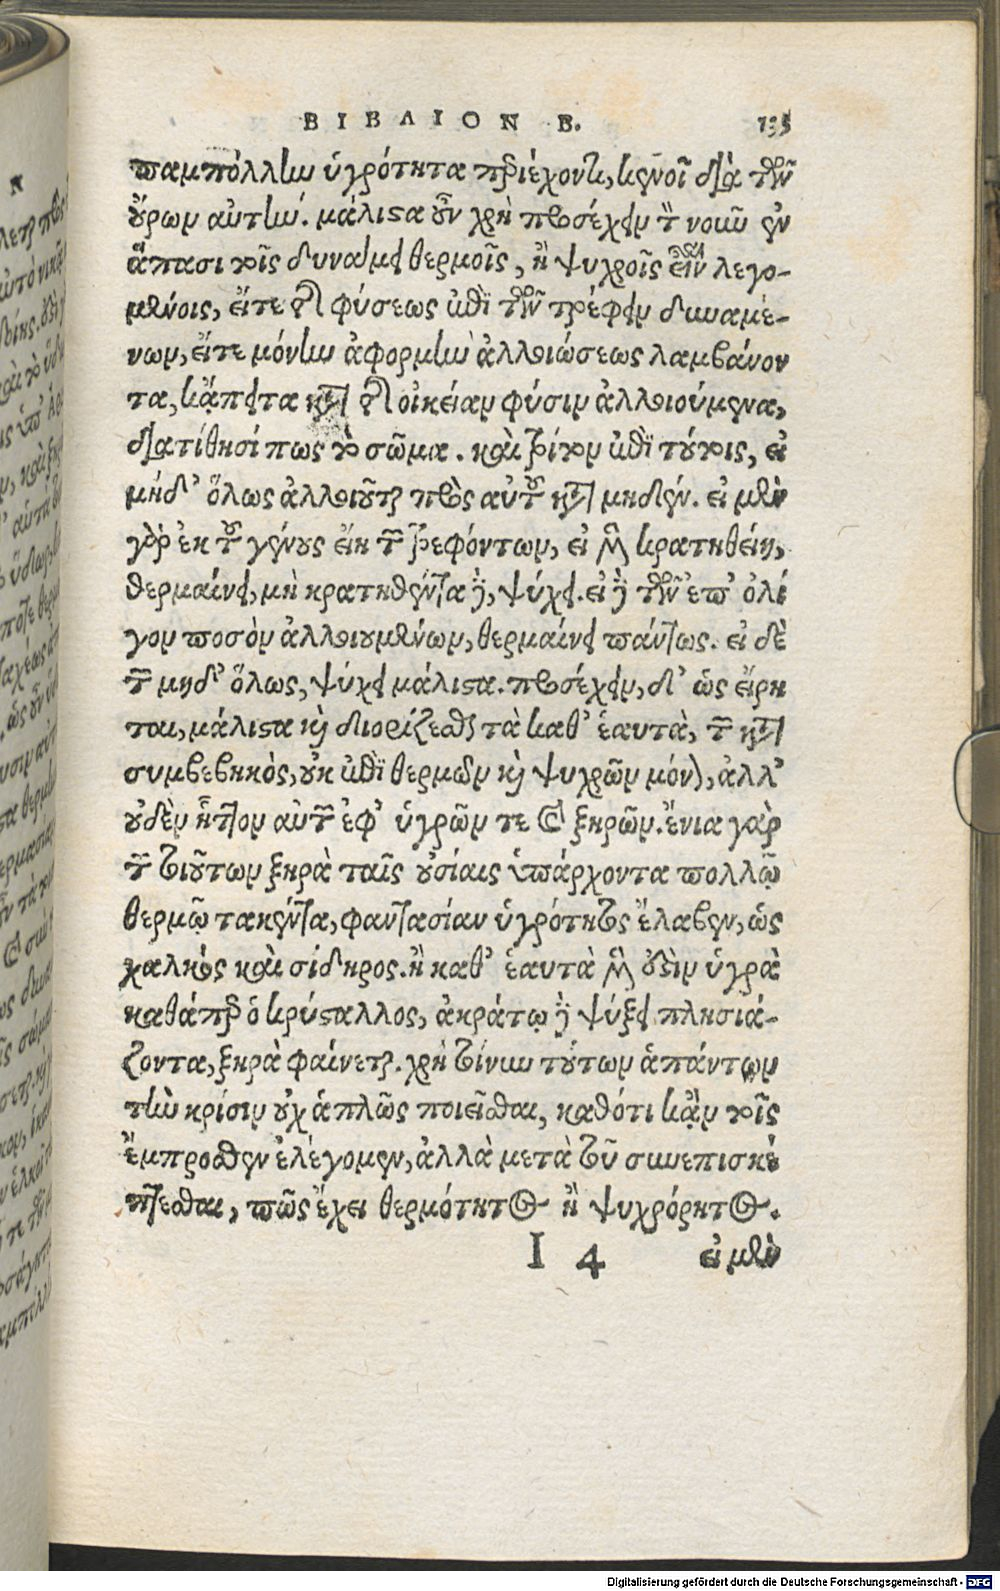 ΒΙΒΛΙΟΝ Β. 135
παμπόλλην ὑγρότητα περιέχοντι, κενοῖ διὰ τῶν
οὔρων αὐτήν. μάλιστα οὖν χρὴ προσέχειν τὸν νοῦν ἐν
ἅπασι τοῖς δυνάμει θερμοῖς, ἢ ψυχροῖς εἶναι λεγο-
μένοις, εἴτε τῆς φύσεως ἐπὶ τῶν τρέφειν δυναμέ-
νων, εἴτε μόνην ἀφορμὴν ἀλλοιώσεως λαμβάνον
τα, κἄπειτα κατὰ τὴν οἰκείαν φύσιν ἀλλοιούμενα,
διατίθησί πως τὸ σῶμα. καὶ τρίτον ἐπὶ τούτοις, εἰ
μήδ' ὅλως ἀλλοιοῦται πρὸς αὐτοῦ κατὰ μηδέν. εἰ μὲν
γὰρ ἐκ τοῦ γένους εἴη τῶν τρεφόντων, εἰ μὲν κρατηθείη,
θερμαίνει, μὴ κρατηθέντα δὲ, ψύχει. εἰ δὲ τῶν ἐπ' ὀλί
γον ποσὸν ἀλλοιουμένων, θερμαίνει πάντως. εἰ δὲ
τῶν μηδ' ὅλως, ψύχει μάλιστα. προσέχειν, δ' ὡς εἴρη
ται, μάλιστα καὶ διορίζεσθαι τὰ καθ' ἑαυτὰ, τῶν κατὰ
συμβεβηκὸς, οὐκ ἐπὶ θερμῶν καὶ ψυχρῶν μόνον, ἀλλ'
οὐδὲν ἧττον αὐτῶν ἐφ' ὑγρῶν τε καὶ ξηρῶν. ἔνια γὰρ
τῶν τοιούτων ξηρὰ ταῖς οὐσίαις ὑπάρχοντα πολλῷ
θερμῷ τακέντα, φαντασίαν ὑγρότητος ἔλαβεν, ὡς
χαλκός καὶ σίδηρος. ἢ καθ' ἑαυτὰ μὲν οὐδὲν ὑγρὰ
καθάπερ ὁ κρύσταλλος, ἀκράτῳ δὲ ψύξει πλησιά-
ζοντα, ξηρὰ φαίνεται. χρὴ τοίνυν τούτων ἁπάντων
τὴν κρίσιν οὐχ ἁπλῶς ποιεῖσθαι, καθότι κἂν τοῖς
ἔμπροσθεν ἐλέγομεν, ἀλλὰ μετὰ τοῦ συνεπισκέ
πτεσθαι, πῶς ἔχει θερμότητος ἢ ψυχρόρητος.
I 4 εἰ μὲν
Digitalisierung gefördert durch die Deutsche Forschungsgemeinschaft - DFG